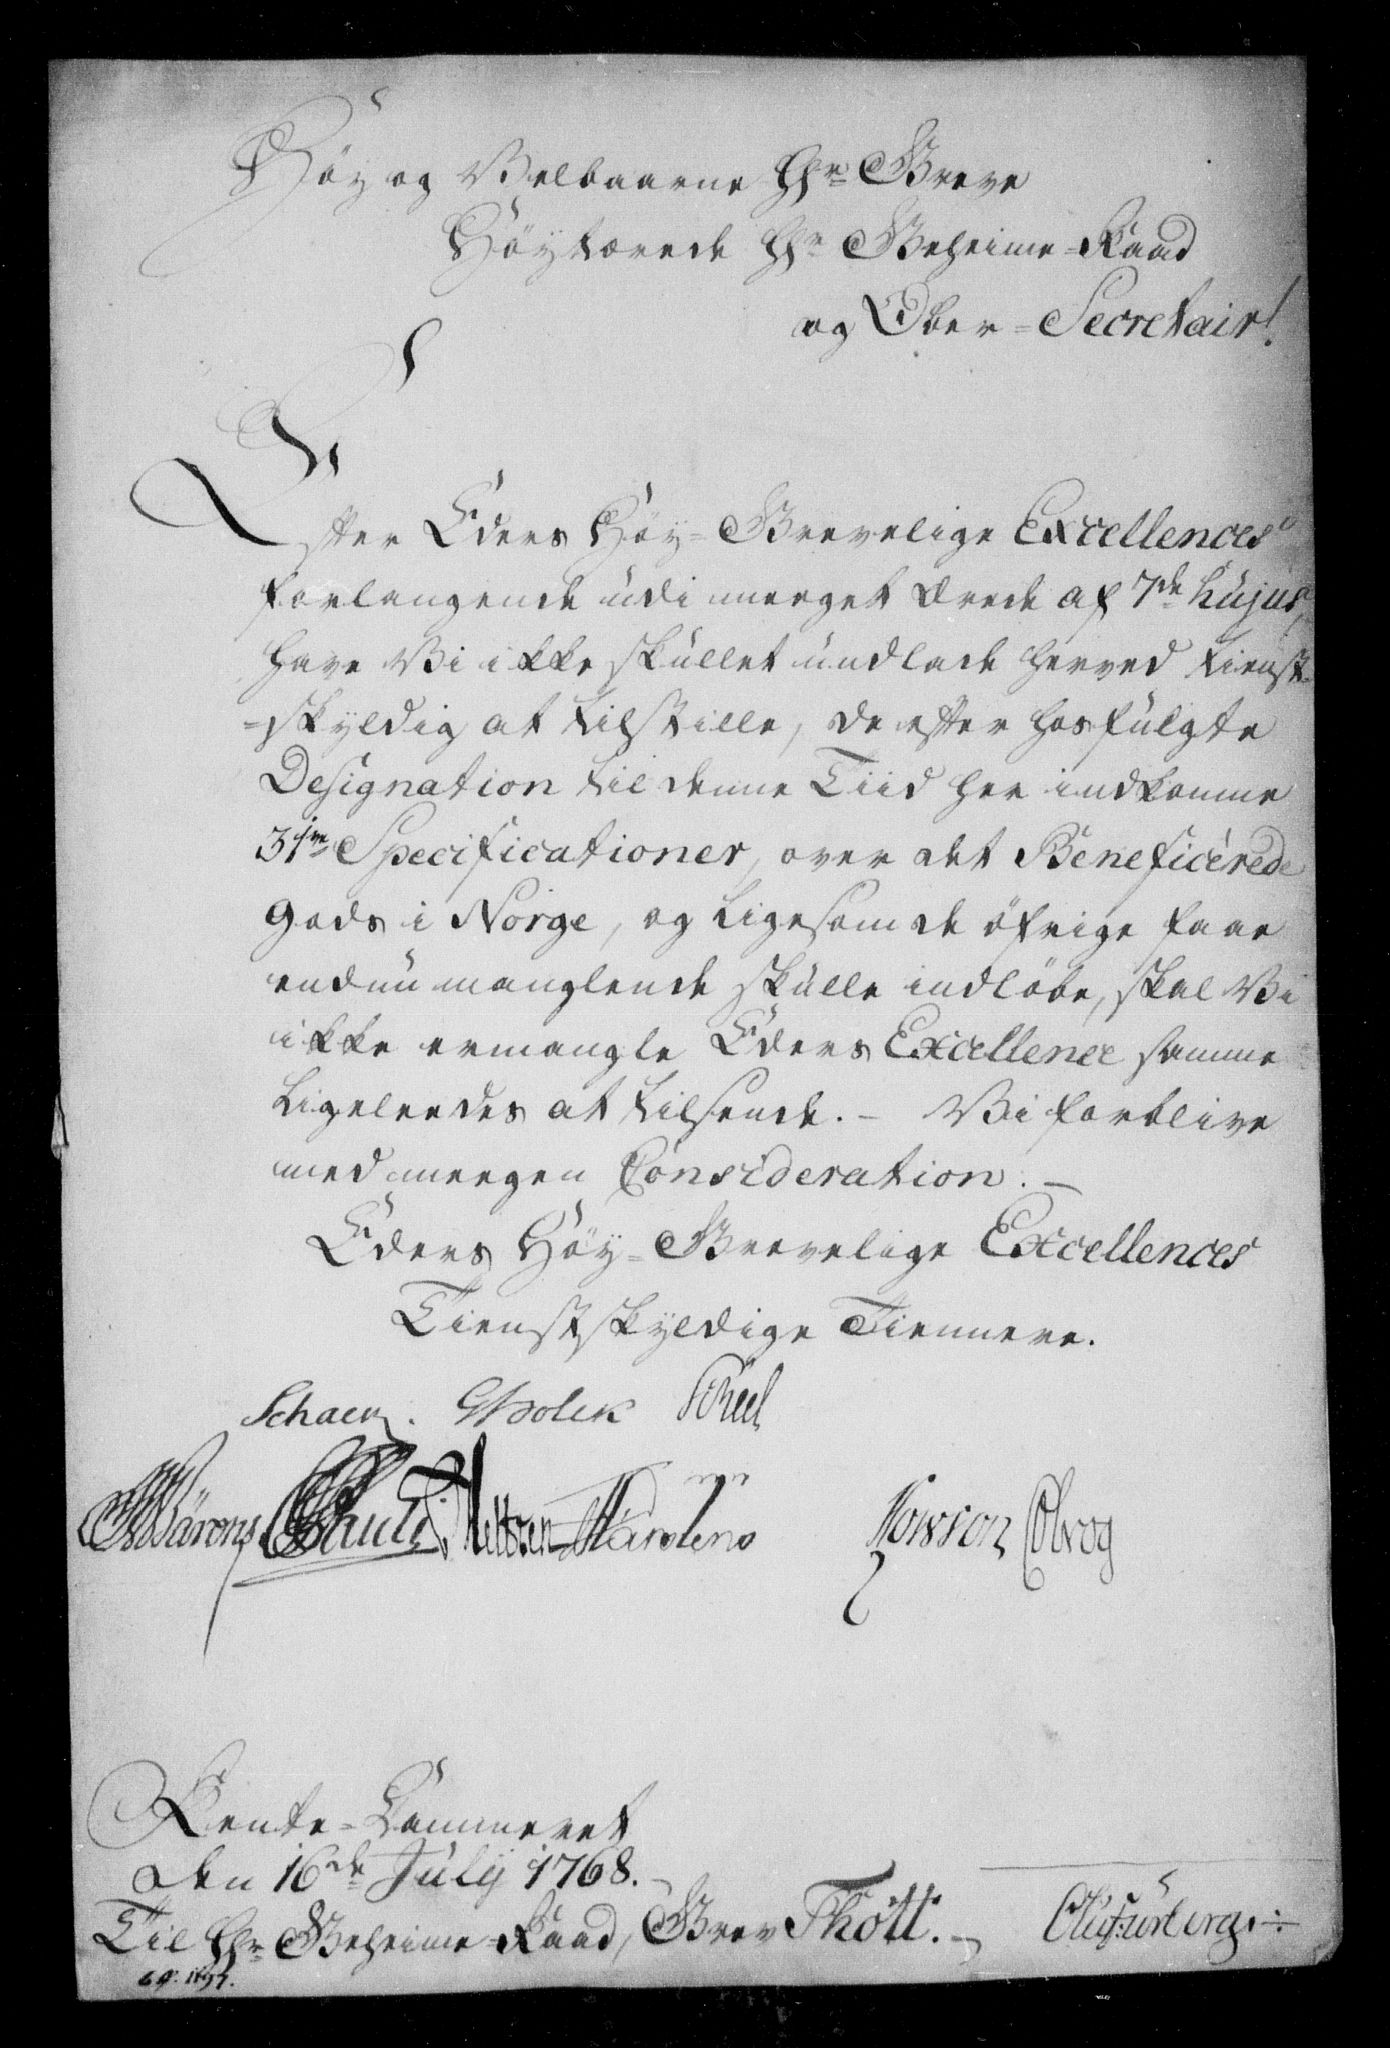 Höy og Velbaarne Hr Greve
Höytærede Hr Geheime-Raad
og Ober-Secretair!
Efter Eders Höy-Grevelige Excellences
forlangende udi meeget ærede af 7de hujus,
have Vi ikke skullet undlade herved tienst-
=skyldig at tilstille, de efter hosfulgte
Designation til denne Tiid her indkomne
31ve Specificationer, over det Beneficerede
Gods i Norge, og ligesom de öfrige faae
endnu manglende skulle indlöbe, skal Vi
ikke ermangle Eders Excellence samme
ligeleedes at tilsende. - Vi forblive
med meegen Consideration. -
Eders Höy-Grevelige Excellences
Tienstskyldige Tiennere.
Schack.
Rente-Cammeret
den 16de July 1768.
Til Hr Geheime-Raad, Grev Thött. -